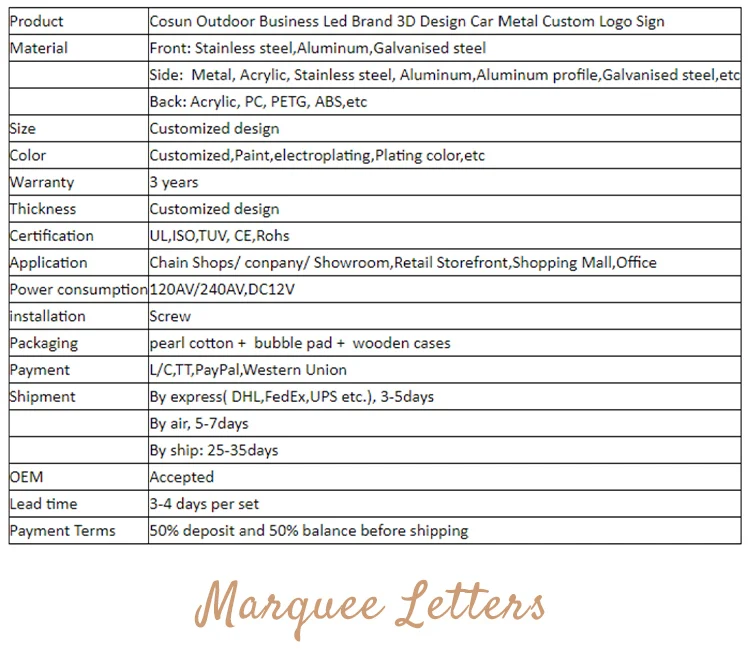 Product Cosun Outdoor Business Led Brand 3D Design Car Metal Custom Logo Sign
Material Front: Stainless steel,Aluminum,Galvanised steel
Side: Metal, Acrylic, Stainless steel, Aluminum,Aluminum profile,Galvanised steel,etc
Back: Acrylic, PC, PETG, ABS,etc
Size Customized design
Color Customized,Paint,electroplating,Plating color,etc
Warranty 3 years
Thickness Customized design
Certification UL,ISO,TUV, CE,Rohs
Application Chain Shops/ conpany/ Showroom,Retail Storefront,Shopping Mall,Office
Power consumption 120AV/240AV,DC12V
installation Screw
Packaging pearl cotton + bubble pad + wooden cases
Payment L/C,TT,PayPal,Western Union
Shipment By express( DHL,FedEx,UPS etc.), 3-5days
By air, 5-7days
By ship: 25-35days
OEM Accepted
Lead time 3-4 days per set
Payment Terms 50% deposit and 50% balance before shipping
Marquee Letters